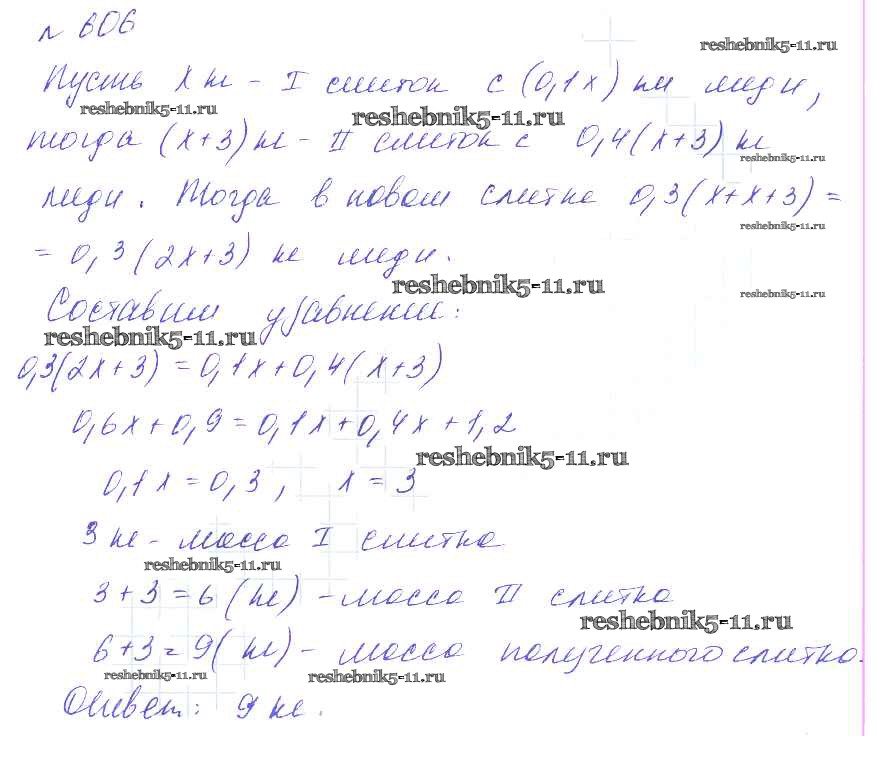 № 606
reshebnik5-11.ru
Пусть x кг - I слиток с (0,1x) кг меди,
reshebnik5-11.ru reshebnik5-11.ru
тогда (x+3) кг - II слиток с 0,4(x+3) кг
reshebnik5-11.ru
меди. Тогда в новом слитке 0,3(x+x+3) =
reshebnik5-11.ru
= 0,3(2x+3) кг меди.
reshebnik5-11.ru reshebnik5-11.ru
Составим уравнение:
reshebnik5-11.ru
0,3(2x+3) = 0,1x+0,4(x+3)
0,6x+0,9=0,1x+0,4x+1,2
reshebnik5-11.ru
0,1x=0,3, x=3
3 кг - масса I слитка
reshebnik5-11.ru
3+3=6 (кг) - масса II слитка
reshebnik5-11.ru
6+3=9 (кг) - масса полученного слитка.
reshebnik5-11.ru reshebnik5-11.ru
Ответ: 9 кг.